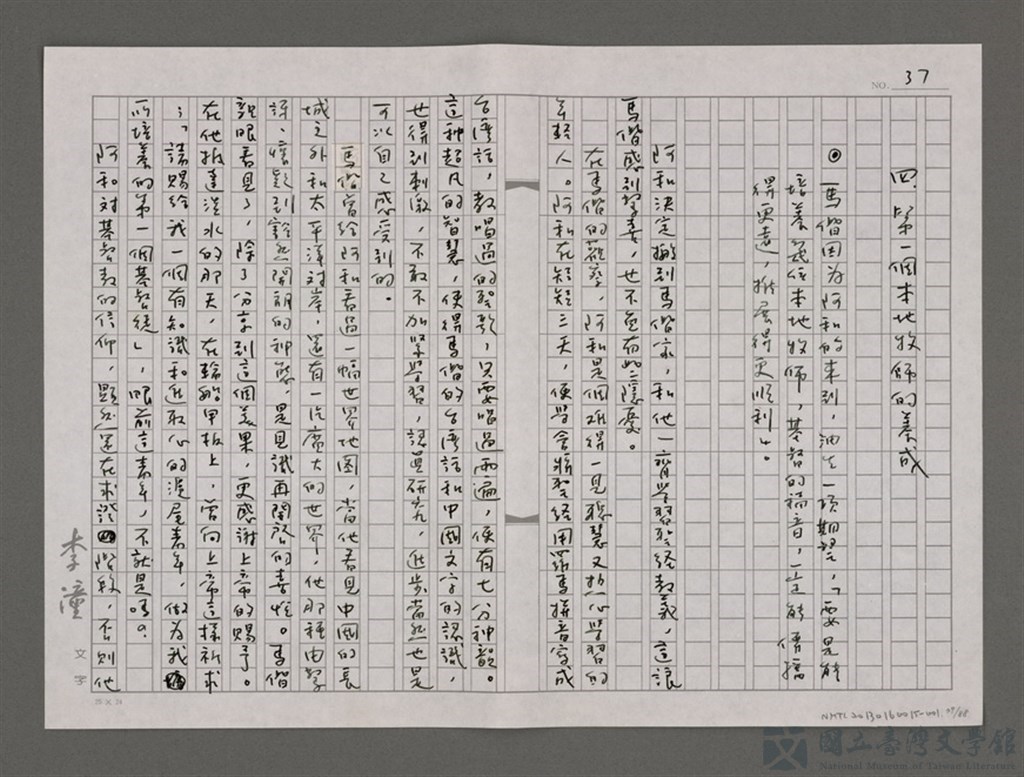 NO. 37
四、第一個本地牧師的養成
◎馬偕因为阿和的来到,油生一項期望,「要是能
培養幾位本地牧师,基督的福音,一定能傳播
得更遠,推展得更順利」。
阿和決定搬到馬偕家,和他一齊学習聖经教義,這讓
馬偕感到驚喜,也不免有些隱憂。
在馬偕的觀察,阿和是個难得一見聪慧又热心学習的
年輕人。阿和在短短三天,便学会將聖经用羅馬拼音寫成
台湾話,教唱過的聖歌,只要唱過兩遍,便有七分神韻。
這种超凡的智慧,使得馬偕的台湾話和中國文字的認識,
也得到刺激,不敢不加緊学習,認真研究,進步當然也是
可以自己感受到的。
馬偕曾给阿和看過一幅世界地圖,當他看見中國的長
城之外和太平洋对岸,還有一片廣大的世界,他那種由驚
訝、懷疑到豁然開朗的神態,是見識再開啓的喜悅。馬偕
親眼看見了,除了分享到這個美果,更感谢上帝的賜予。
在他抵達淡水的那天,在輪船甲板上,曾向上帝這樣祈求
:「請賜给我一個有知識和進取心的淡屋青年,做为我
所培養的第一個基督徒」,眼前這青年,不就是嗎?
阿和对基督教的信仰,顯然還在求證階段,否則他
李潼
文字
25 X 24
NMTL20130160015-001. 37/68
國立臺灣文學館
National Museum of Taiwan Literature